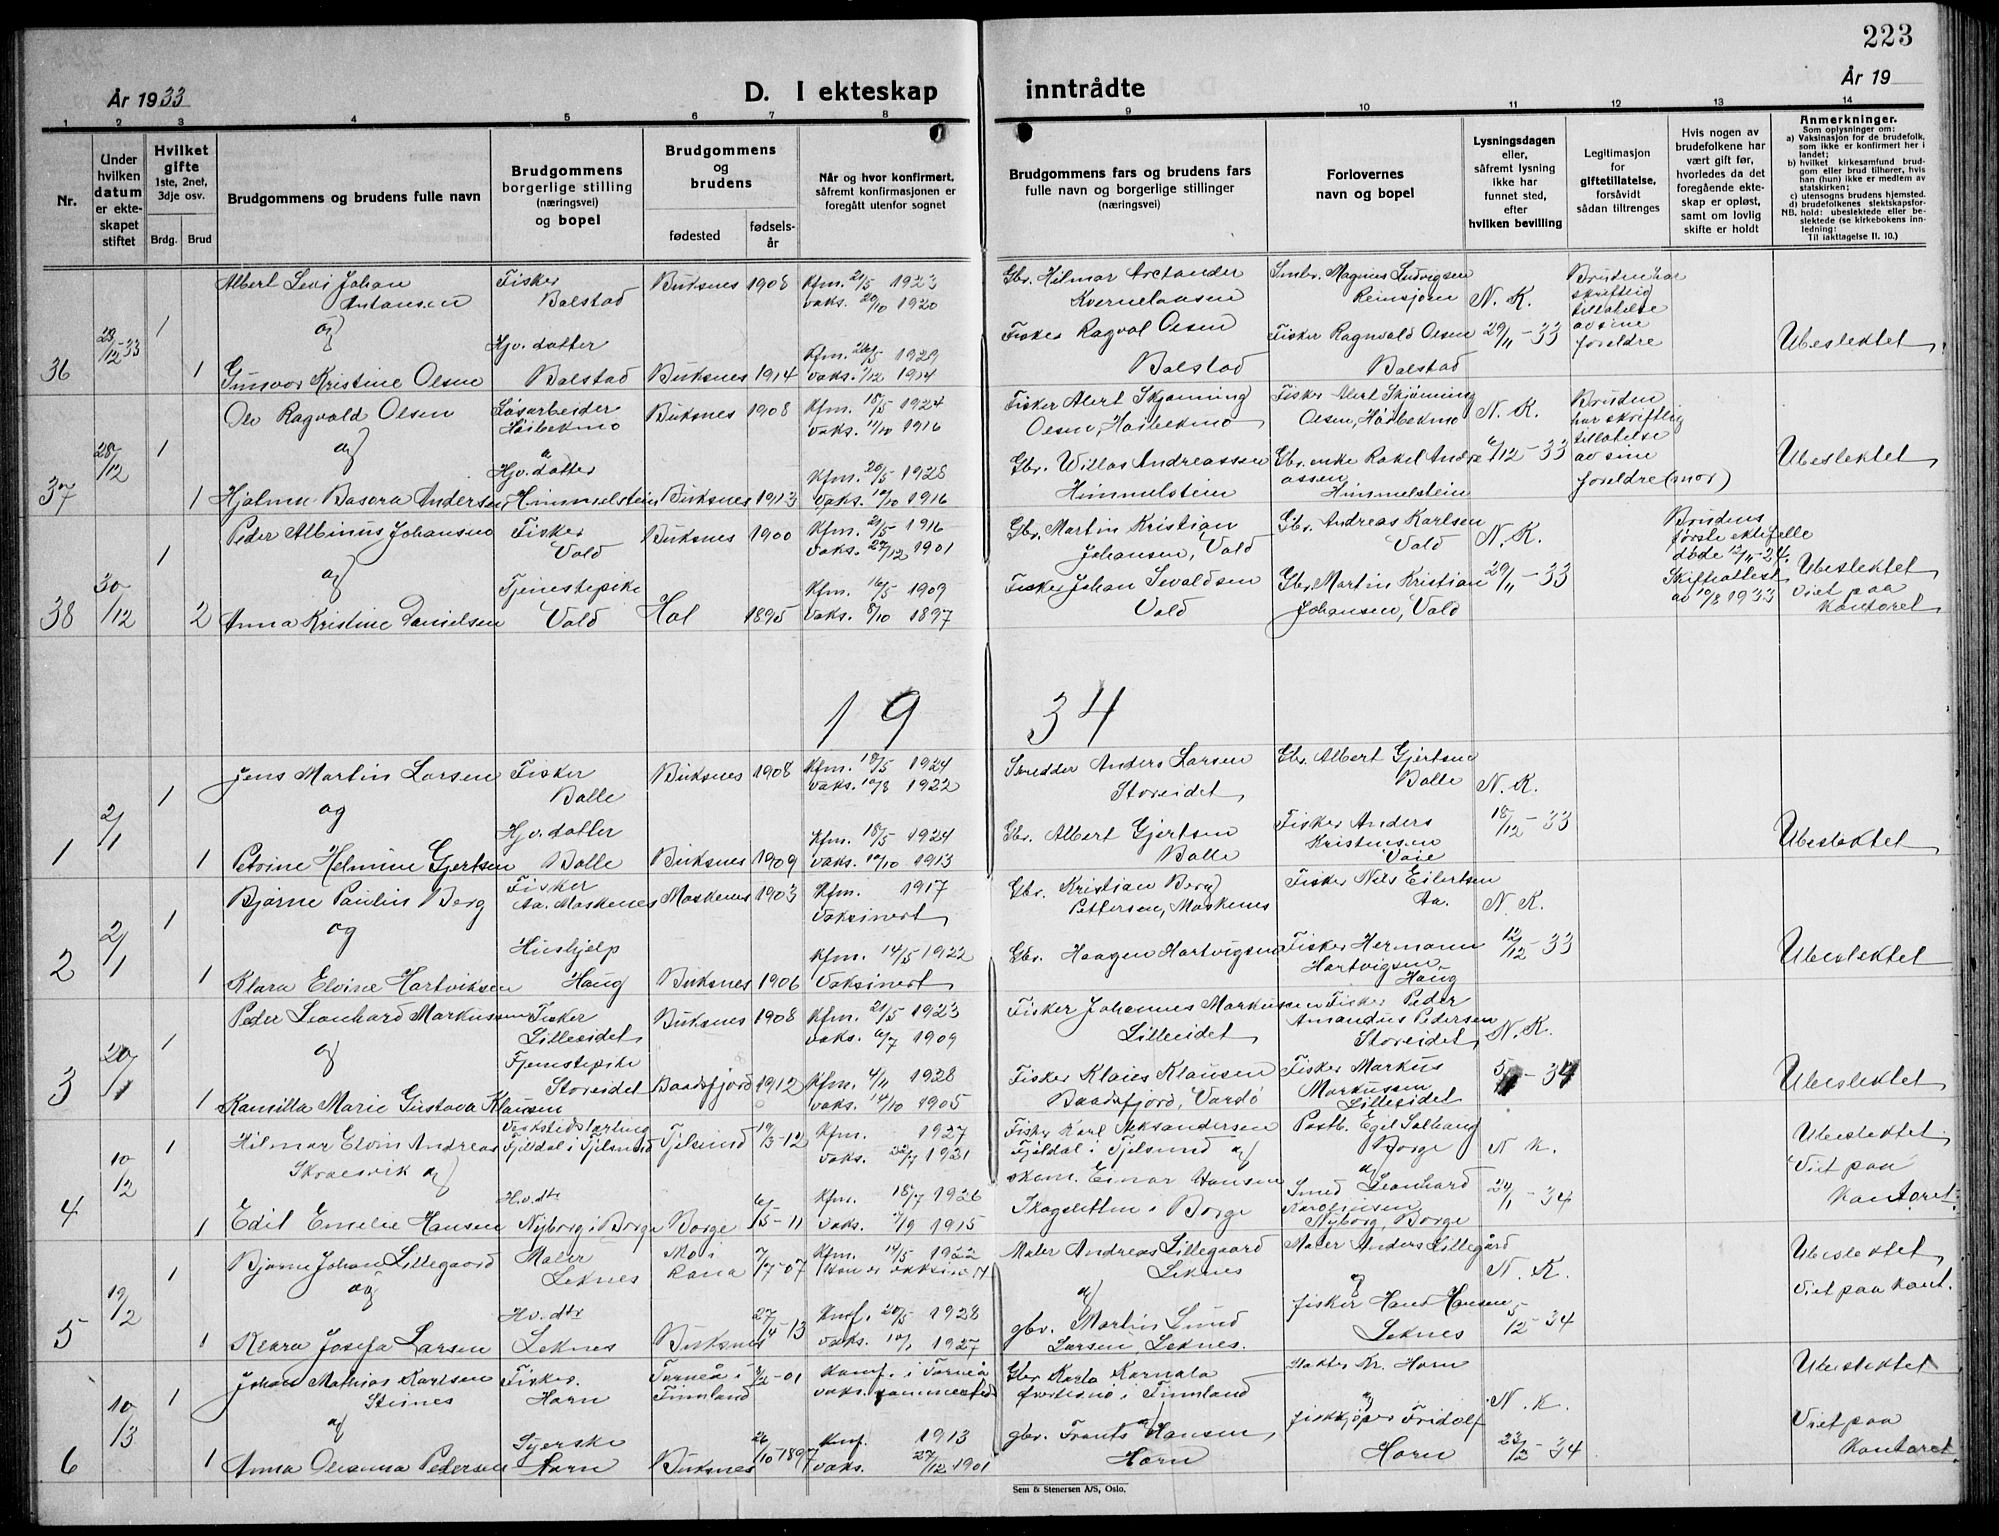 223
År 1933
D. I ekteskap
inntrådte
År 19
1 2 3 4 5 6 7 8 9 10 11 12 13 14
Nr.
Under
hvilken
datum
er ekte-
skapet
stiftet
Hvilket
gifte
1ste, 2net,
3dje osv.
Brdg. Brud
Brudgommens og brudens fulle navn
Brudgommens
borgerlige stilling
(næringsvei)
og bopel
Brudgommens
og
brudens
fødested
fødsels-
år
Når og hvor konfirmert,
såfremt konfirmasjonen er
foregått utenfor sognet
Brudgommens fars og brudens fars
fulle navn og borgerlige stillinger
(næringsvei)
Forlovernes
navn og bopel
Lysningsdagen
eller,
såfremt lysning
ikke har
funnet sted,
efter
hvilken bevilling
Legitimasjon
for
giftetillatelse,
forsåvidt
sådan tiltrenges
Hvis nogen av
brudefolkene har
vært gift før,
hvorledes da det
foregående ekte-
skap er opløst,
samt om lovlig
skifte er holdt
Anmerkninger.
Som oplysninger om:
a) Vaksinasjon for de brudefolk,
som ikke er konfirmert her i
landet;
b) hvilket kirkesamfund brud-
gom eller brud tilhører, hvis
han (hun) ikke er medlem av
statskirken;
c) utensogns brudens hjemsted.
d) brudefolkenes slektskapsfor-
NB. hold: ubeslektede eller be-
slektede (se kirkebokens inn-
ledning:
Til iakttagelse II. 10.)
36
23/12-33
1
1
Albert Levi Johan
Antonsen
og
Gunvor Kristine Olsen
Fisker
Balstad
Hjv. datter
Balstad
Buksnes 1908
Buksnes 1914
Kfm. 21/5 1923
vaks. 20/10 1920
Kfm. 26/5 1929
vaks. 1/12 1914
Gbr. Hilmar Arctander
Kvernelaasen
Fisker Ragval Olsen
Balstad
Smbr. Magnus Ludvigsen
Reinsjøen
Fisker Ragnvald Olsen
Balstad
N. K.
29/11-33
Bruden har
skriftlig
tillatelse
av sine
foreldre
Ubeslektet
37
28/12
1
1
Ole Ragvald Olsen
og
Hjalma Basora Andersen
Løsarbeider
Høibekmo
Hjv. datter
Himmelstein
Buksnes 1908
Buksnes 1913
Kfm. 18/5 1924
vaks. 11/10 1916
Kfm. 20/5 1928
Vaks. 10/10 1916
Fisker Alert Skjønning
Olsen, Høibekmo
Gbr. Willas Andreassen
Himmelstein
Fisker Alert Skjønning
Olsen, Høibekmo
Gbr. enke Rakel Andre
assen
Himmelstein
N. K.
6/12-33
Bruden
har skriftlig
tillatelse
av sine
foreldre (mor)
Ubeslektet
38
30/12
1
2
Peder Albinus Johansen
og
Anna Kristine Danielsen
Fisker
Vold
Tjenestepike
Vold
Buksnes 1900
Hol 1895
Kfm. 21/5 1916
vaks. 27/12 1901
Kfm. 16/5 1909
Vaks. 8/10 1897
Gbr. Martin Kristian
Johansen, Vold
Fisker Johan Sivaldsen
Vold
Gbr. Andreas Karlsen
Vold
Gbr. Martin Kristian
Johansen, Vold
N. K.
29/11-33
Brudens
første ektefelle
døde 12/11-24.
Skifteattest
av 10/8 1933
Ubeslektet
Viet paa
kontoret
19 34
1
2/1
1
1
Jens Martin Larsen
og
Petrine Helmine Gjertsen
Fisker
Balle
Hjv. datter
Balle
Buksnes 1908
Buksnes 1909
Kfm. 18/5 1924
vaks. 10/8 1922
Kfm. 18/5 1924
vaks. 10/10 1913
Skredder Anders Larsen
Storeidet
Gbr. Albert Gjertsen
Balle
Gbr. Albert Gjertsen
Balle
Fisker Anders
Kristensen
Voie
N. K.
18/12-33
Ubeslektet
2
2/1
1
1
Bjarne Paulin Berg
og
Klara Elvine Hartviksen
Fisker
Aa. Moskenes
Hushjelp
Haug
Moskenes 1903
Buksnes 1906
Kfm. 1917
Vaksinert
Kfm. 14/5 1922
Vaksinert
Gbr. Kristian Berg
Pettersen, Moskenes
Gbr. Haagen Hartvigsen
Fisker Nils Eilertsen
Aa.
Fisker Hermann
Hartvigsen
Haug
N. K.
12/12-33
Ubeslektet
3
20/1
1
1
Peder Leonhard Markussen
og
Kamilla Marie Gustava Klausen
Fisker
Lilleeidet
Tjenestepike
Storeidet
Buksnes 1908
Baadsfjord 1912
Kfm. 21/5 1923
vaks. 6/7 1909
Kfm. 4/11 1928
vaks. 14/10 1905
Fisker Johannes Markussen
Lilleeidet
Fisker Klaus Klausen
Baadsfjord, Vardø
Fisker Peder
Amandus Pedersen
Storeidet
Fisker Markus
Markussen
Lilleeidet
N. K.
Ubeslektet
4
10/12
1
1
Hilmar Elvin Andreas
Skraasvik og
Edit Emelie Hansen
Verkstedslærling
Fjeldal i Tjelsund
H.v. dtr
Nyborg i Borge
Tjelsund 19/3-12
Borge 6/5-11
Kfm. 1927
vaks. 22/7 1921
Kfm. 18/7 1926
vaks. 7/9 1915
Fisker Karl Aleksandersen
Fjeldal i Tjelsund og
skom. Einar Hansen
Skogsletten i Borge
Postb. Egil Solhaug
Borge
og
Smed Leonhard
Karolinsen
Nyborg, Borge
N. K.
24/1-34
Ubeslektet
Viet paa
Kontoret
5
19/2
1
1
Bjarne Johan Lillegaard
og
Klara Josefa Larsen
Maler
Leknes
H.v. dtr
Leknes
Mo i
Rana 7/7-07
Buksnes 27/4-13
Kfm. 14/5 1922
Han er vaksinert
Kmf. 20/5 1928
vaks. 10/1 1927
Maler Andreas Lillegaard
Leknes
og
gbr. Martin Lund
Larsen, Leknes.
Maler Anders Lillegård
og
fisker Hans Hansen
Leknes
N. K.
5/12-34
Ubeslektet
Viet paa kont.
6
10/3
1
1
Johan Mathias Karlsen
Steines
og
Anna Oleanna Pedersen
Fisker.
Horn
Syerske
Horn
Torneå i
Finnland 3/2-01
Buksnes 26/10-1897
Konf. i Torneå
vaks. sammesteds
Kmf. 1913
vaks. 27/12 1901
Gbr Karlo Kornala
i Finnland
og
gbr. Frants Hansen
Horn
Horn
og
fiskkjøper Fridolf
Horn
N. K.
23/2-34
Ubeslektet
Viet paa
kontoret
Sem & Stenersen A/S, Oslo.